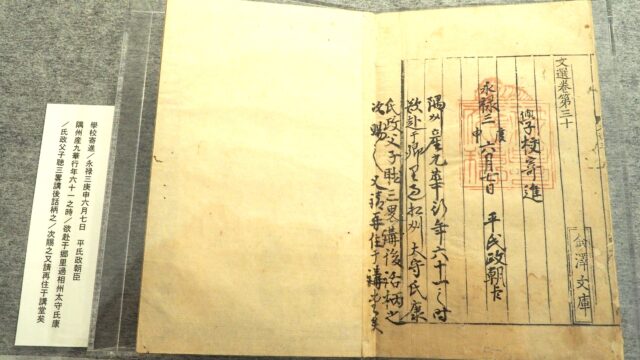 文選卷第三十
金澤文庫
學校寄進
永禄三庚申六月七日　平氏政朝臣
隅州産九華行年六十一之時
欲赴于郷里過相州太守氏康
氏政父子聽三畧講後話柄之
次賜之又請再住于講堂矣
學校寄進/永禄三庚申六月七日　平氏政朝臣
隅州産九華行年六十一之時/欲赴于郷里過相州太守氏康
/氏政父子聴三畧講後話柄之/次賜之又請再住于講堂矣